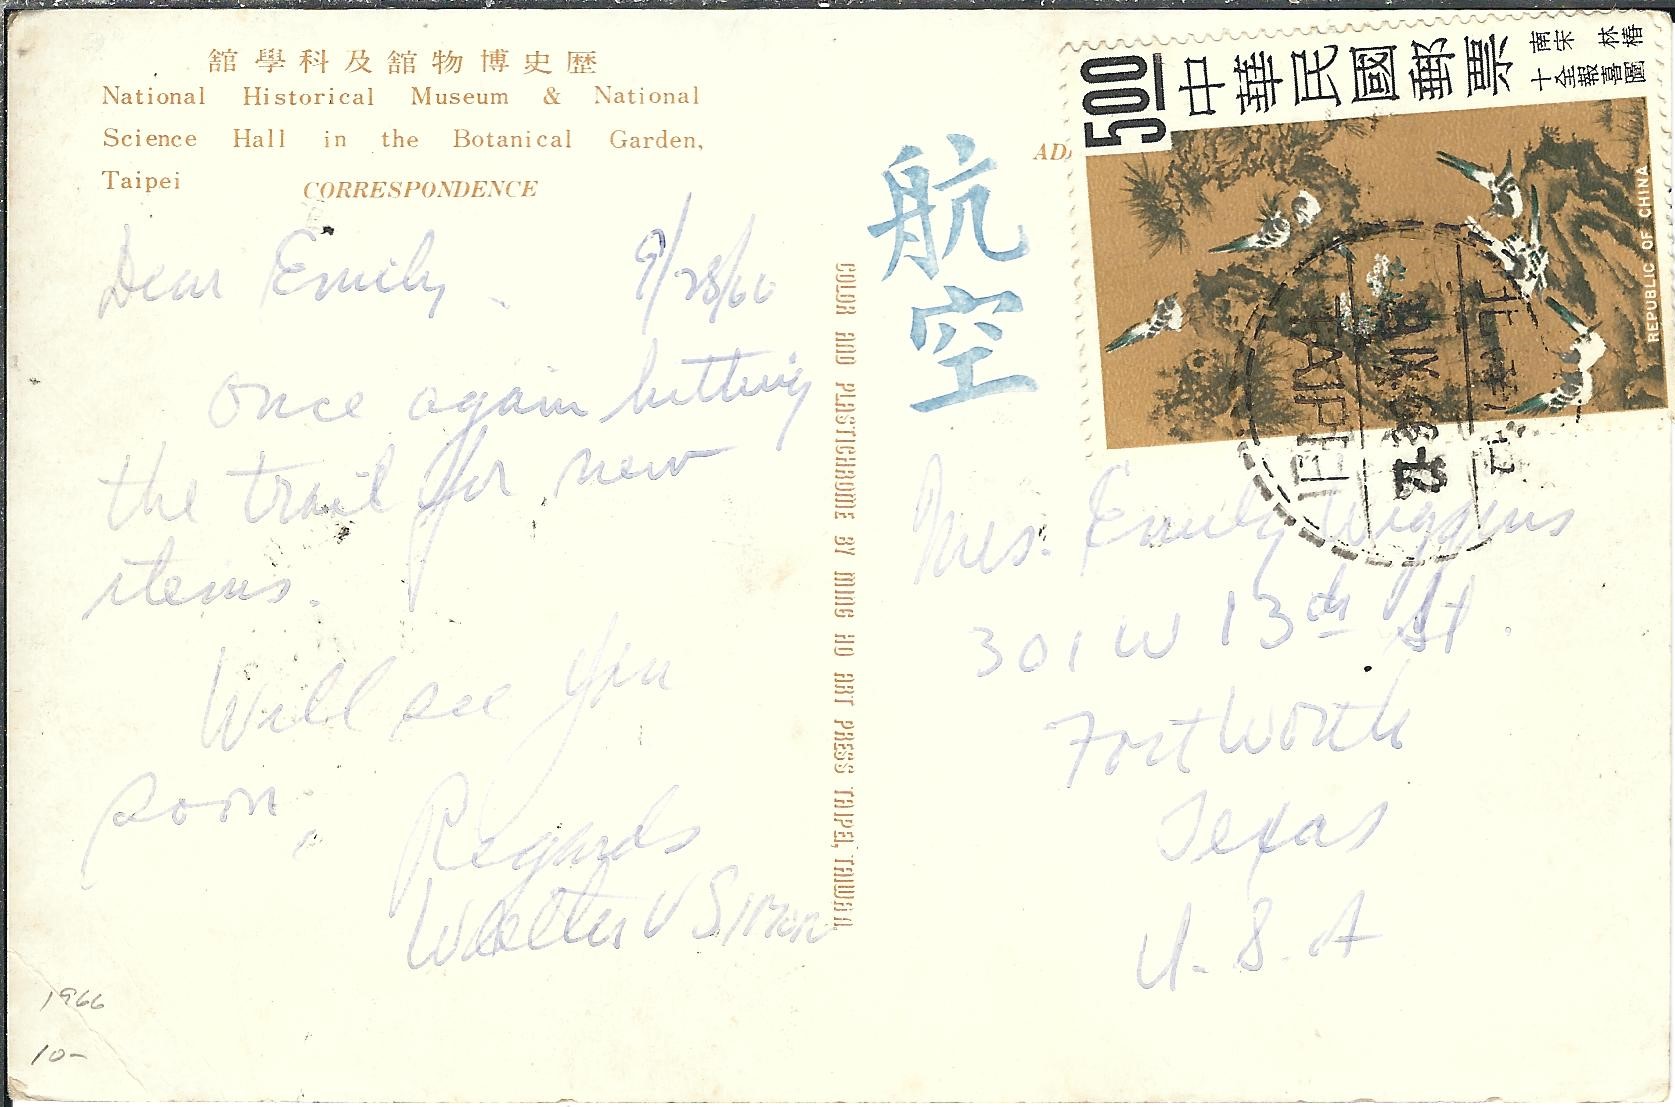 館學科及館物博史歷
National Historical Museum & National
Science Hall in the Botanical Garden,
Taipei
CORRESPONDENCE
Dear Emily 9/28/66
once again hitting
the trail for new
items.
Will see you
soon.
Regards
Walter V
1966
10-
COLOR AND PLASTICHROME BY MING HO ART PRESS TAIPEI, TAIWAN
航空
AD
5.00
中華民國郵票
南宋 林椿
十全報喜圖
REPUBLIC OF CHINA
TAIPEI
Mrs. Emily Wiggins
301 W 13th St.
Fort Worth
Texas
U.S.A